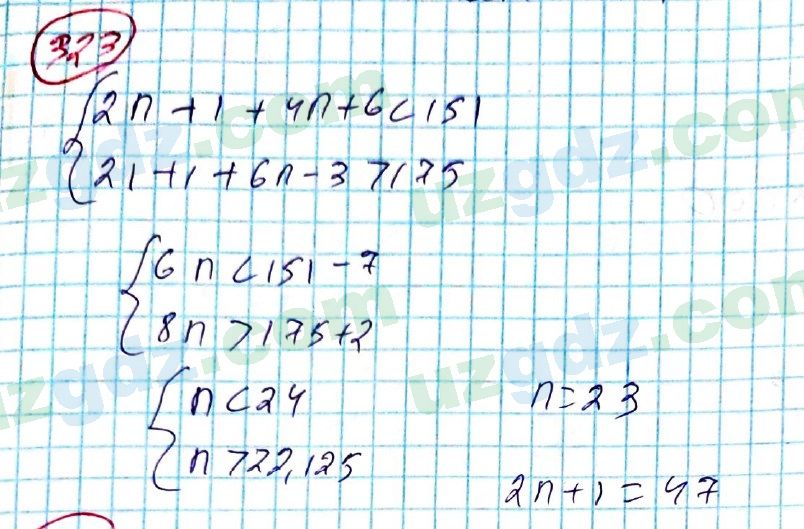 323
2n + 1 + 4n + 6 < 151
21 + 1 + 6n - 3 > 175
6n < 151 - 7
8n > 175 + 2
n < 24
n = 23
n > 22,125
2n + 1 = 47
uzgdz.com
uzgdz.com
uzgdz.com
uzgdz.com